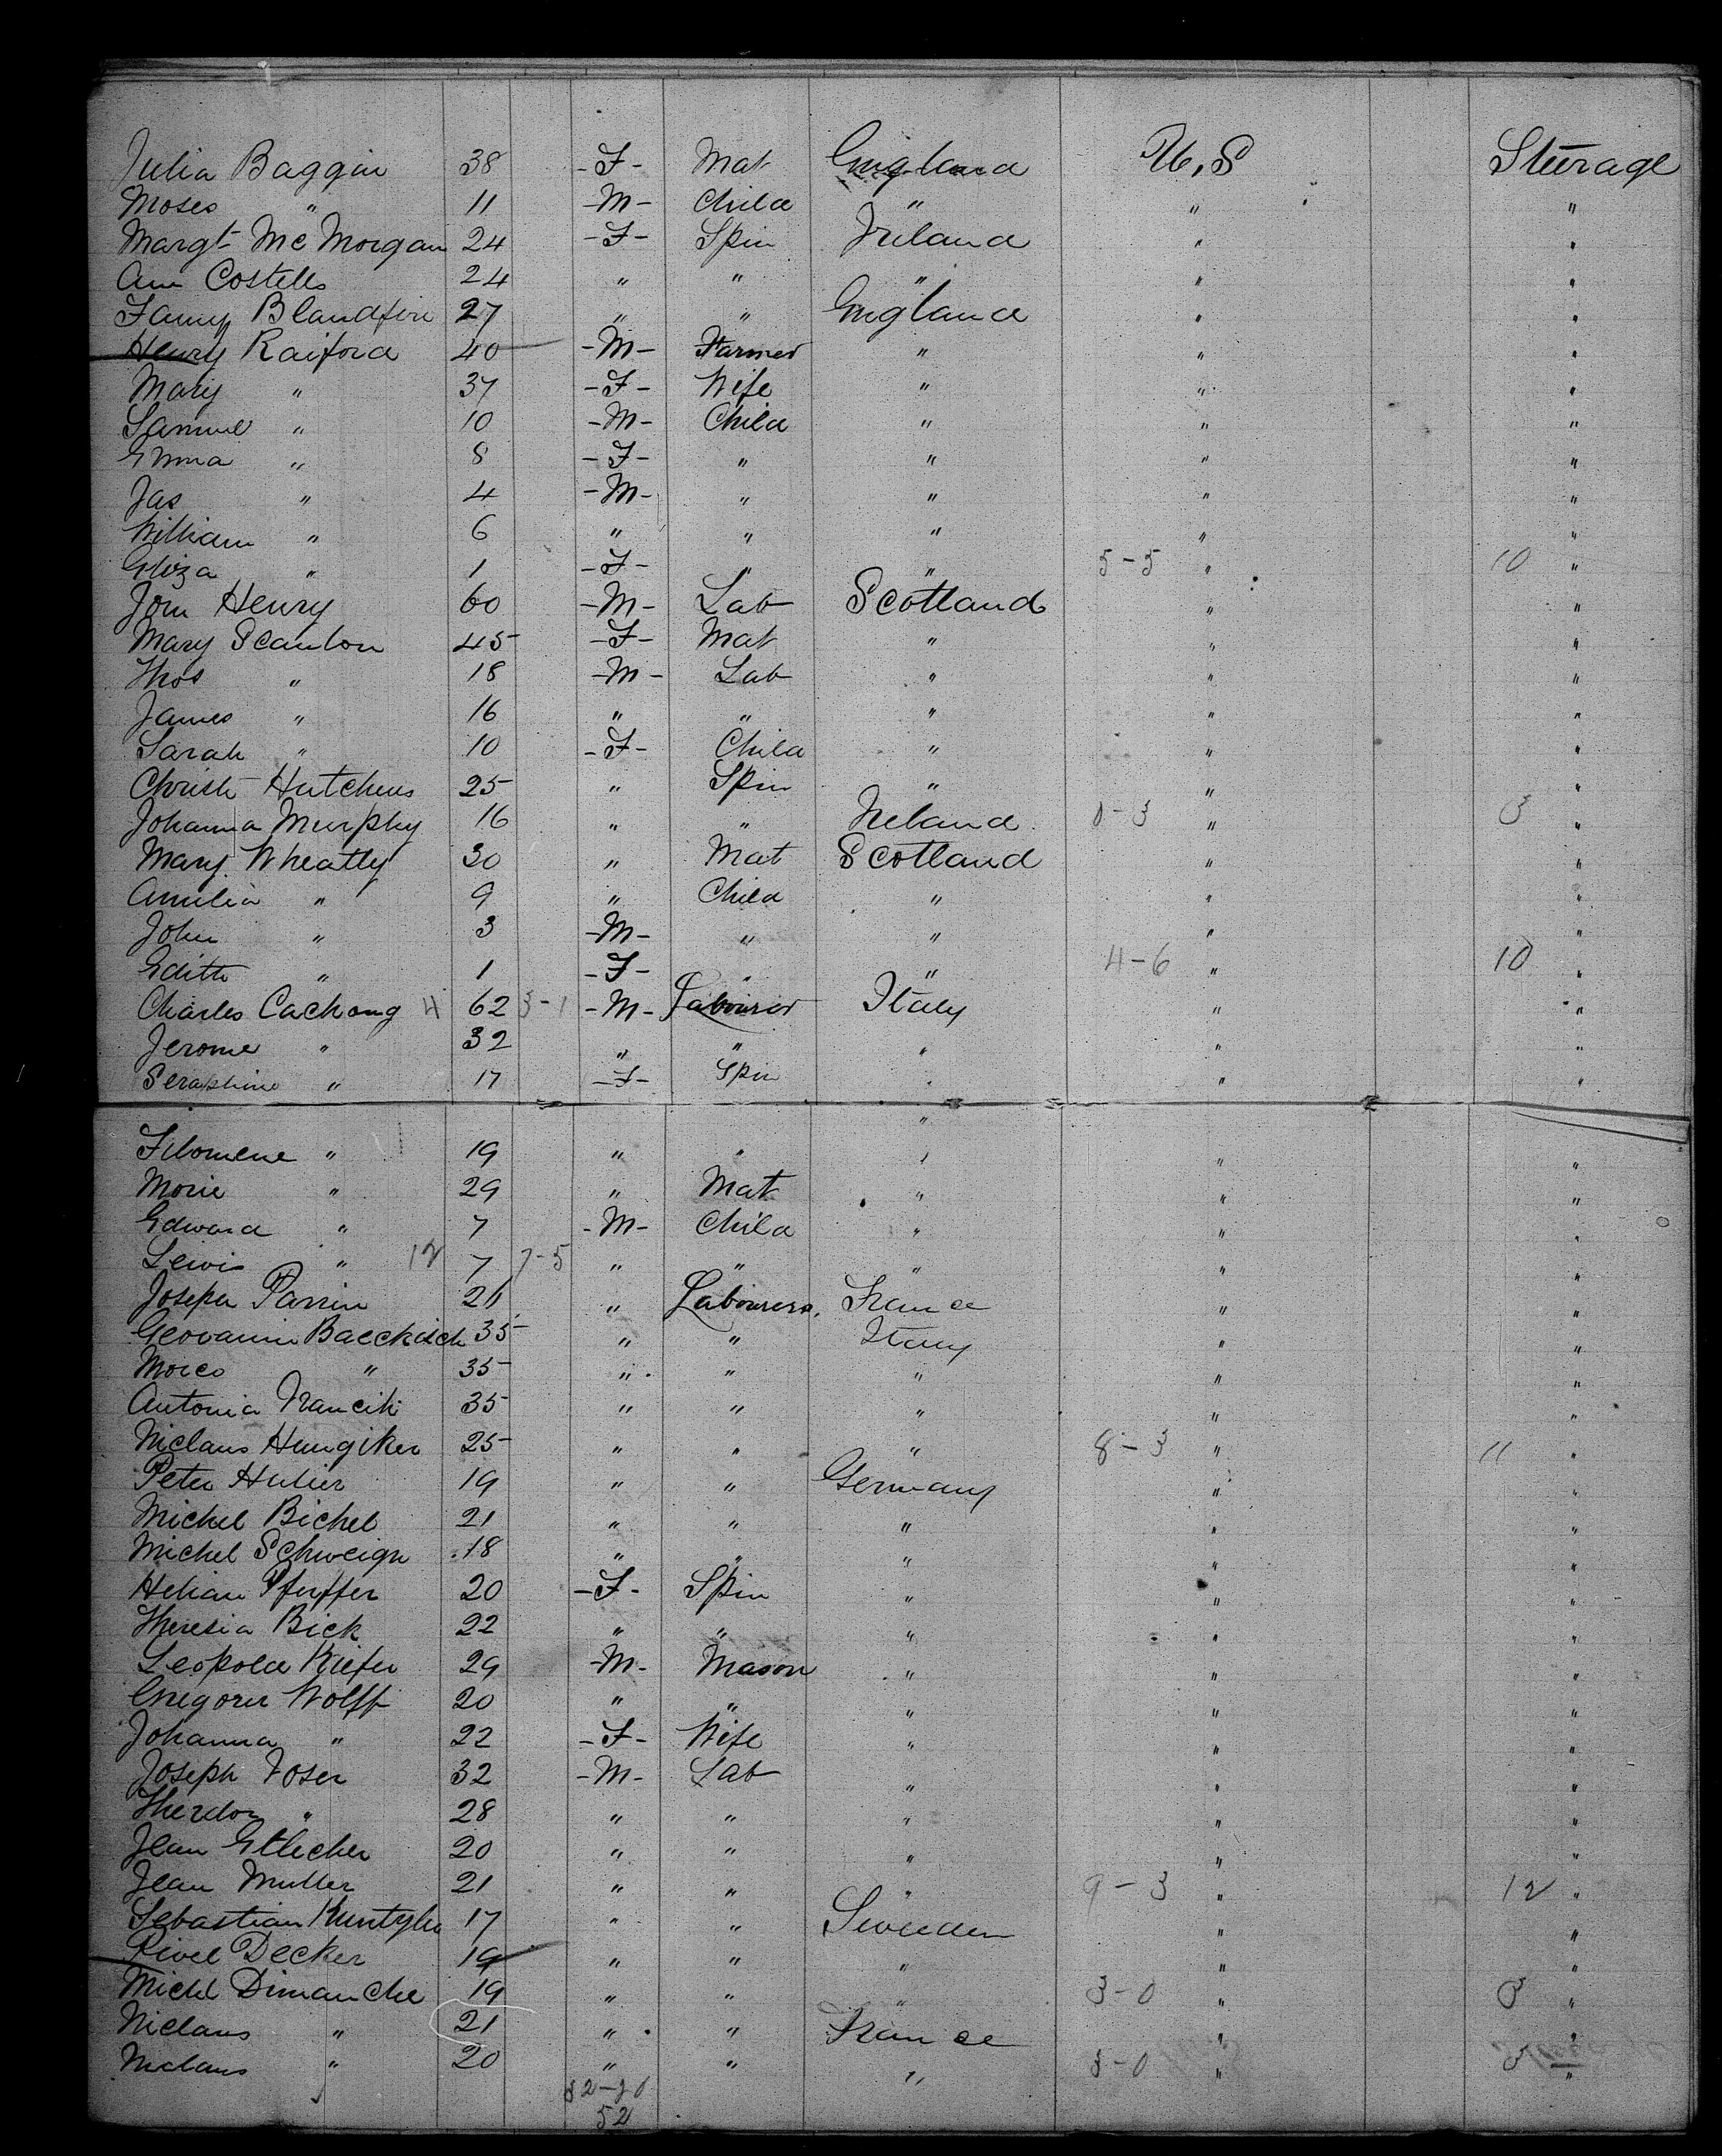 Julia Baggin 38 -F- Mat England U,S Steerage
Moses " 11 -M- Child " " "
Margt McMorgan 24 -F- Spin Ireland " "
Ann Costello 24 " " " " "
Fanny 27 " " England " "
Henry Raiford 40 -M- Farmer " " "
Mary " 37 -F- Wife " " "
Samuel " 10 -M- Child " " "
Emma " 8 -F- " " " "
Jas " 4 -M- " " " "
William " 6 " " " " "
Eliza " 1 -F- " " 5-5 " 10 "
Jom Henry 60 -M- Lab Scotland " "
Mary Scanlon 45 -F- Mat " " "
Thos " 18 -M- Lab " " "
James " 16 " " " " "
Sarah " 10 -F- Child " " "
Christi Hutchens 25 " Spin " " "
Johanna Murphy 16 " " Ireland 0-3 " 3 "
Mary Wheatly 30 " Mat Scotland " "
Amelia " 9 " Child " " "
John " 3 -M- " " " "
Edith " 1 -F- " " 4-6 " 10 "
Charles Cachong 4 62 3-1 -M- Labourer Italy " "
Jerome " 32 " " " " "
Seraphine " 17 -F- Spin " " "
"
Filomene " 19 " " " " "
Morie " 29 " Mat " " "
Edward " 7 -M- Child " " "
Lewis " 12 7 7-5 " " " " "
Joseph Parrin 21 " Labourers, France " "
Geovanni 35 " " Italy " "
Morco " 35 " " " " "
Antonia 35 " " " " "
Niclaus Hungiker 25 " " " 8-3 " 11 "
Peter Hulier 19 " " Germany " "
Michel Bichel 21 " " " " "
Michel Schweign 18 " " " " "
Pfeiffer 20 -F- Spin " " "
Theresia Bick 22 " " " " "
Leopold Kiefer 29 -M- Mason " " "
Gregorer Wolff 20 " " " " "
Johanna " 22 -F- Wife " " "
Joseph Foser 32 -M- Lab " " "
" 28 " " " " "
Jean Etlicher 20 " " " " "
Jean Muller 21 " " " 9-3 " 12 "
Sebastian 17 " " Sweeden " "
Decker 19 " " " " "
Michl Dimanche 19 " " " 3-0 " 3 "
Niclaus " 21 " " France " "
Niclaus " 20 " " " 3-0 " 3 "
32-20
52